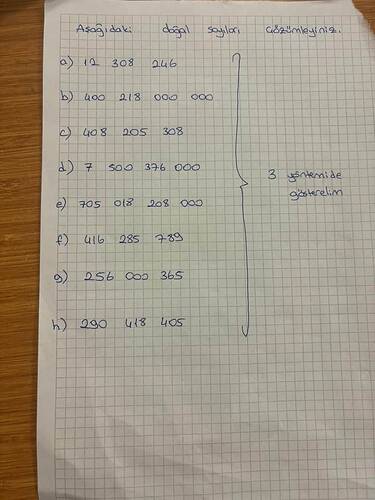 Aşağıdaki doğal sayıları çözümleyiniz.
a) 12 308 246
b) 400 218 000 000
c) 408 205 308
d) 7 500 376 000
e) 705 018 208 000
3 yöntemide
gösterelim
f) 416 285 789
g) 256 000 365
h) 290 418 405